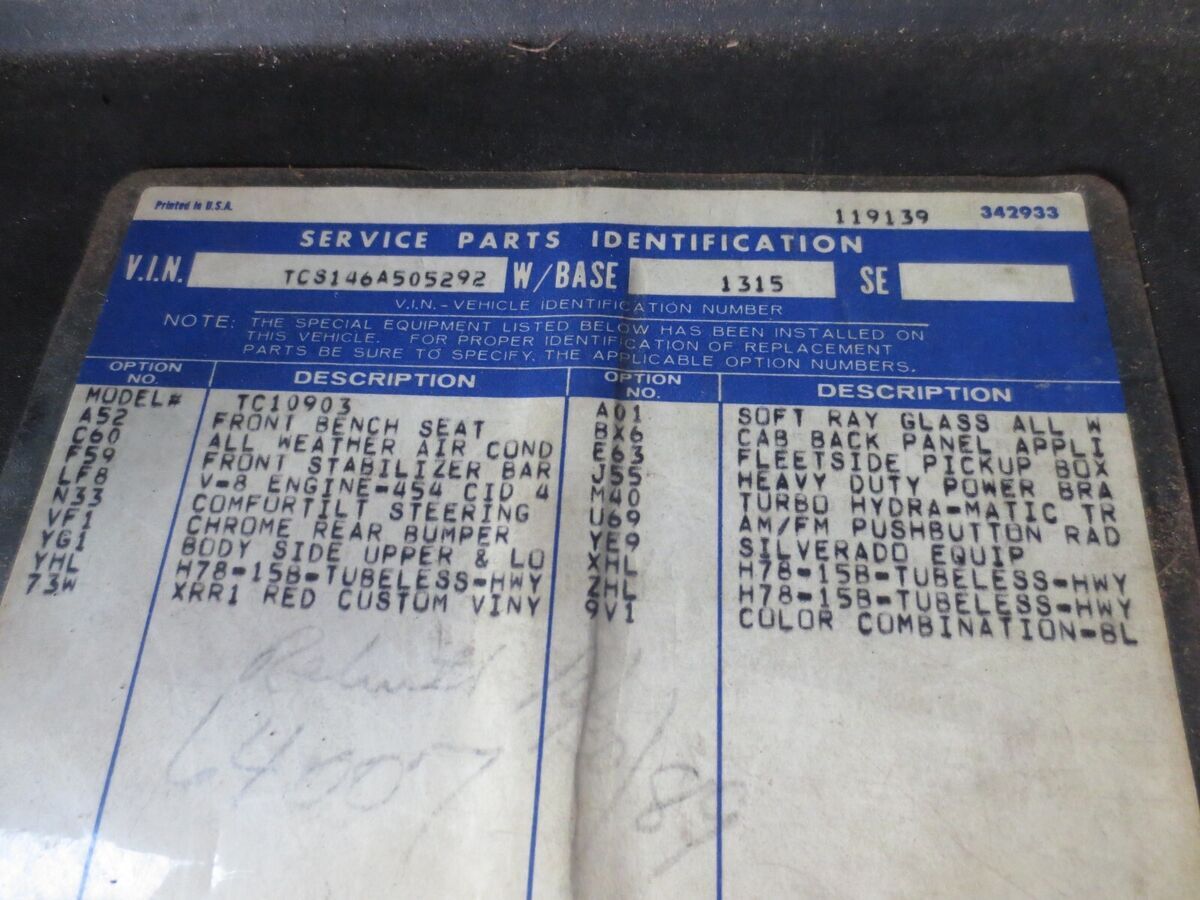 Printed in U.S.A. 119139 342933
SERVICE PARTS IDENTIFICATION
V.I.N. TCS146A505292 W/BASE 1315 SE
V.I.N.-VEHICLE IDENTIFICATION NUMBER
NOTE: THE SPECIAL EQUIPMENT LISTED BELOW HAS BEEN INSTALLED ON
THIS VEHICLE. FOR PROPER IDENTIFICATION OF REPLACEMENT
PARTS BE SURE TO SPECIFY, THE APPLICABLE OPTION NUMBERS.
OPTION NO. DESCRIPTION OPTION NO. DESCRIPTION
MODEL# TC10903
A52 FRONT BENCH SEAT A01 SOFT RAY GLASS ALL W
C60 ALL WEATHER AIR COND BX6 CAB BACK PANEL APPLI
F59 FRONT STABILIZER BAR E63 FLEETSIDE PICKUP BOX
LF8 V-8 ENGINE-454 CID 4 J55 HEAVY DUTY POWER BRA
N33 COMFORTILT STEERING M40 TURBO HYDRA-MATIC TR
VF1 CHROME REAR BUMPER U69 AM/FM PUSHBUTTON RAD
YG1 BODY SIDE UPPER & LO YE9 SILVERADO EQUIP
YHL H78-15B-TUBELESS-HWY XHL H78-15B-TUBELESS-HWY
73W XRR1 RED CUSTOM VINY ZHL H78-15B-TUBELESS-HWY
9V1 COLOR COMBINATION-BL